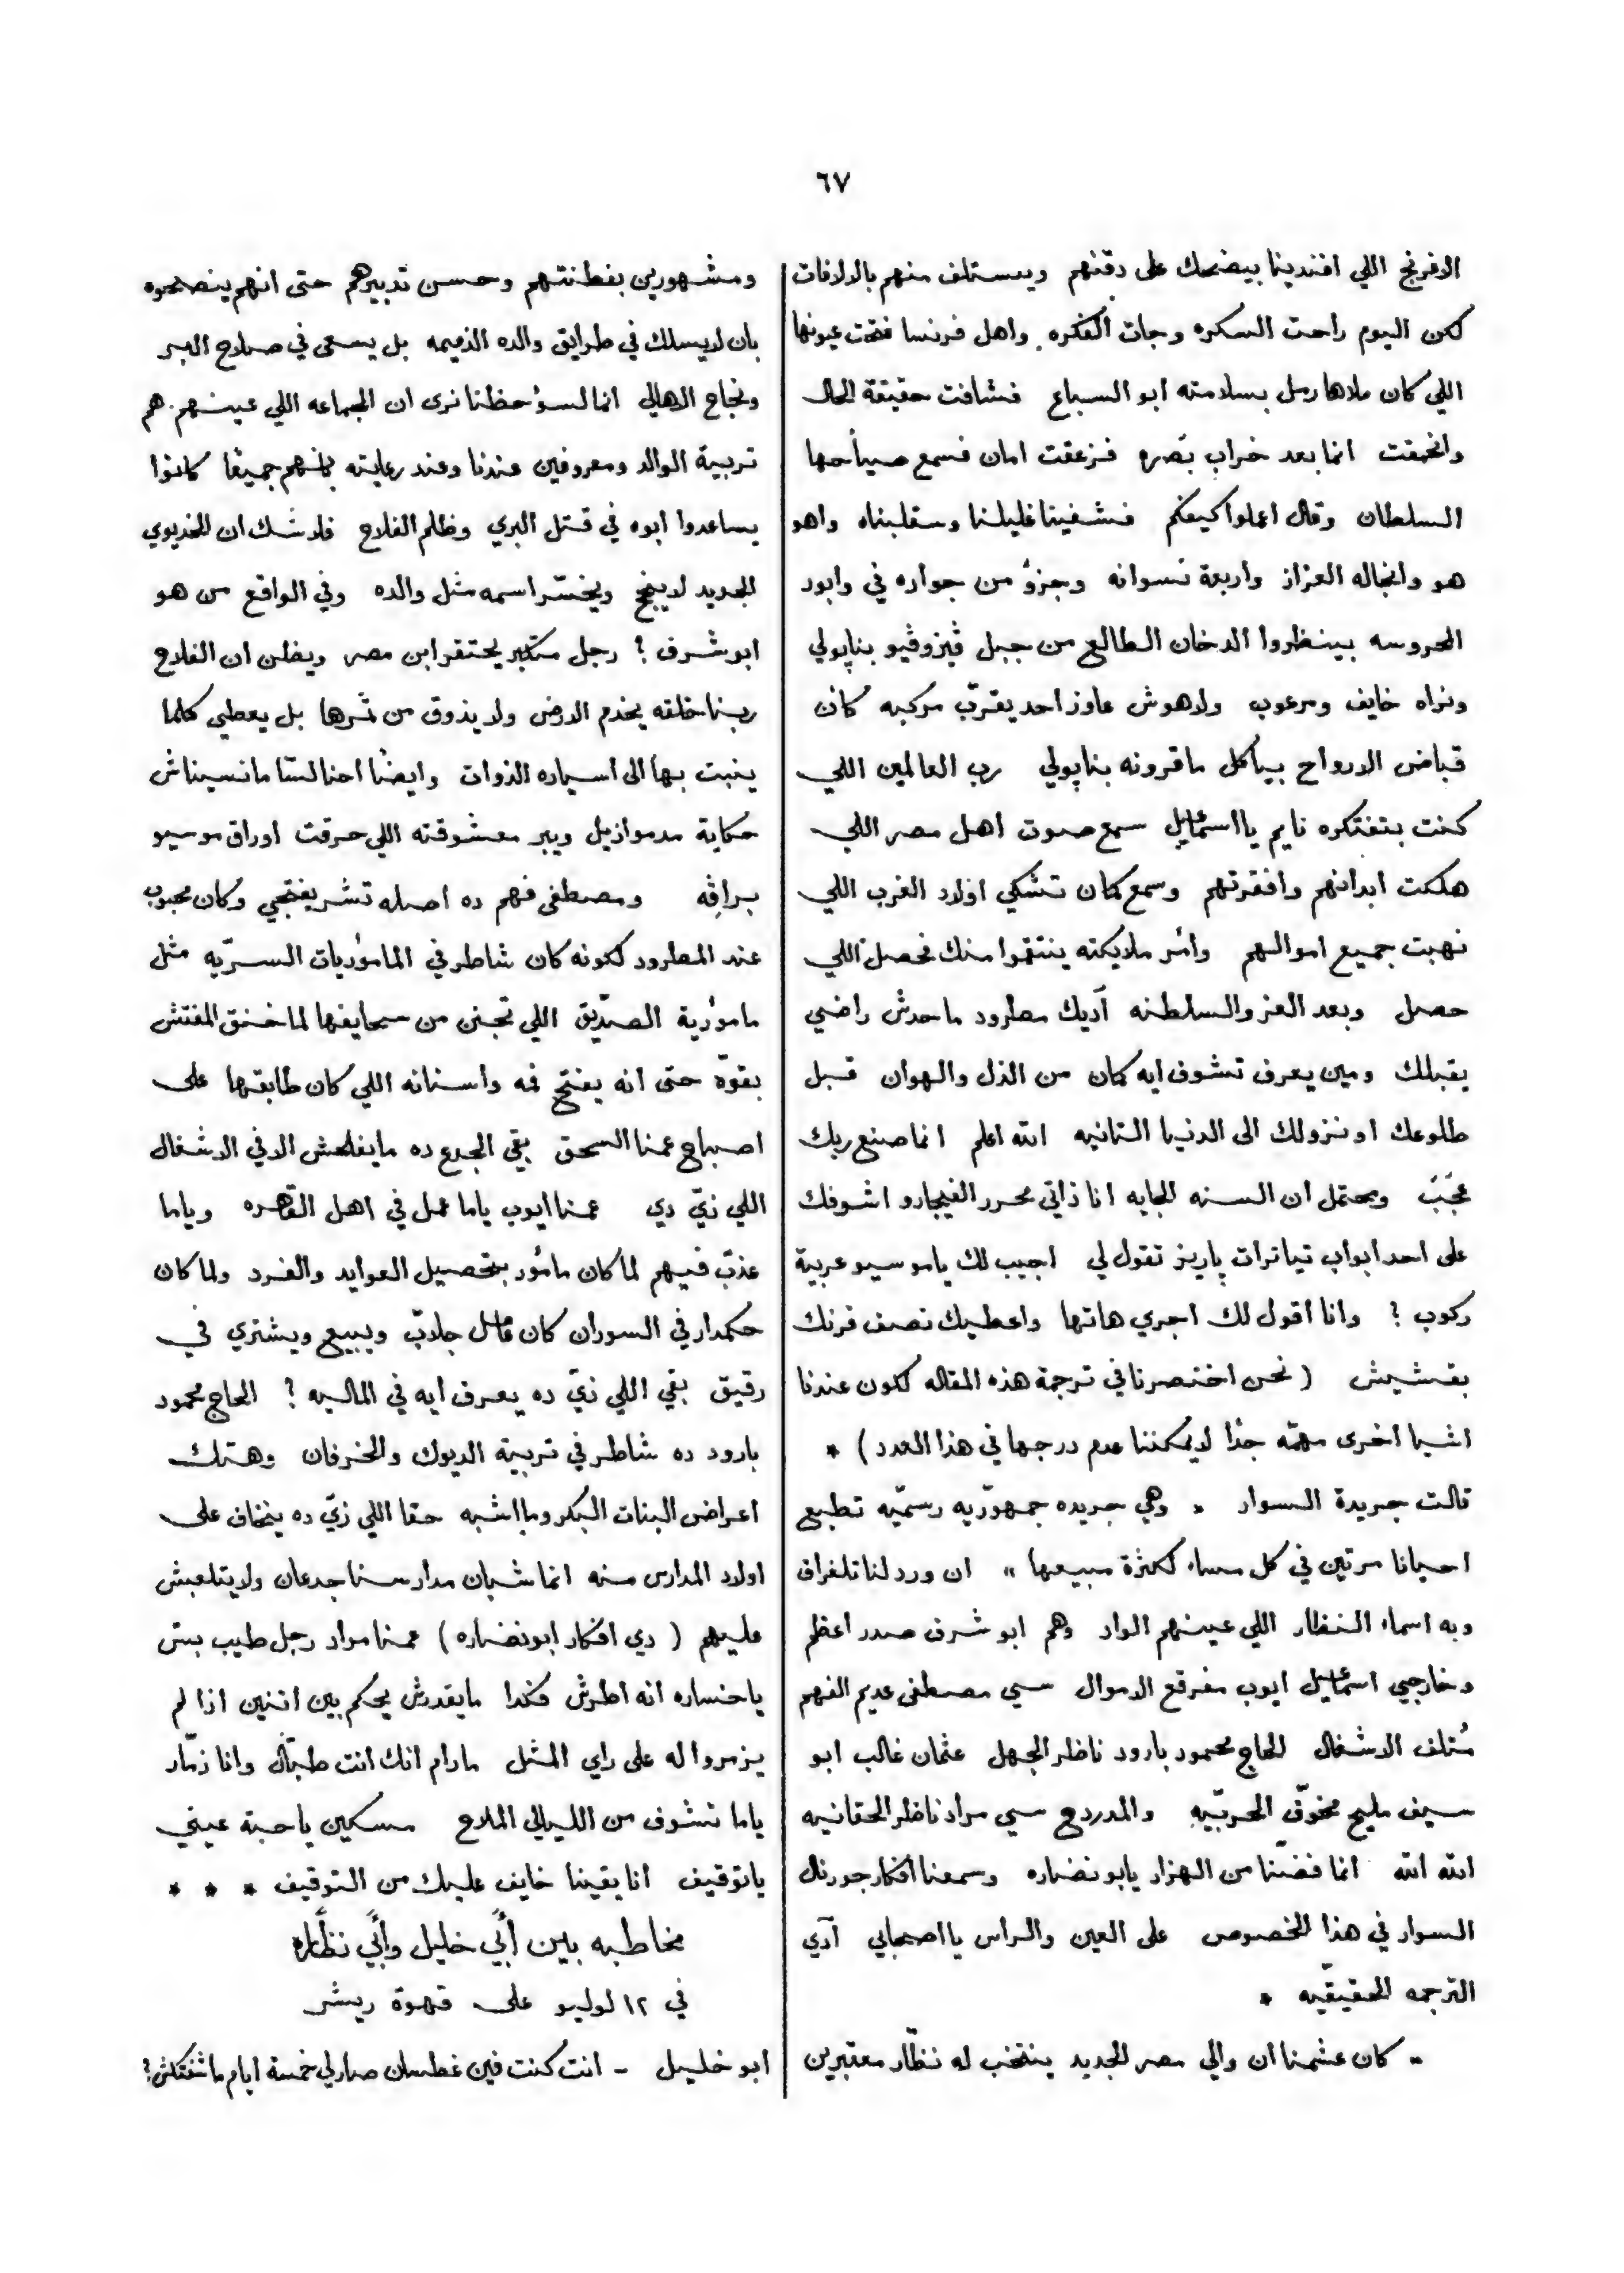 ٦٧
الافرنج اللي افندينا بيضحك على دقنهم ويستلف منهم بالالافات
لكن اليوم راحت السكره وجات الفكره واهل فرنسا فتحت عيونها
اللي كان ملاها رمل بسلامته ابو السباع فشافت حقيقة الحال
وانحمقت انما بعد خراب بصره فزعقت امان فسمع صياحها
السلطان وقال اعملوا كيفكم فشفينا غليلنا وسقلبناه واهو
هو وانجاله العزاز واربعة نسوانه وجزؤ من جواره في وابور
المحروسه بينظروا الدخان الطالع من جبل ڤيزوڤيو بناپولي
ونراه خايف ومرعوب ولاهوش عاوز احد يقرّب مركبه كان
قباض الارواح بياكل ماقرونه بناپولي رب العالمين اللي
كنت بتفتكره نايم يا اسماعيل سمع صوت اهل مصر اللي
هلكت ابدانهم وافقرتهم وسمع كمان تشكي اولاد الغرب اللي
نهبت جميع اموالهم وأمر ملايكته ينتقموا منك فحصل اللي
حصل وبعد العز والسلطنه آديك مطرود ماحدش راضي
يقبلك ومين يعرف تشوف ايه كمان من الذل والهوان قبل
طلوعك او نزولك الى الدنيا التانيه الله اعلم انما صنع ربك
عَجَبْ ويحتمل ان السنه الجايه انا ذاتي محرر الفيجارو اشوفك
على احد ابواب تياترات پاريز تقول لي اجيب لك ياموسيو عربية
ركوب ؟ وانا اقول لك اجري هاتها واعطيك نصف فرنك
بقشيش ( نحن اختصرنا في ترجمة هذه المقاله لكون عندنا
اشيا اخرى مهمّه جدًا لا يمكننا عدم درجها في هذا العدد ) *
قالت جريدة السوار " وهي جريده جمهوريّه رسميّه تطبع
احيانا مرتين في كل مساء لكثرة مبيعها " ان ورد لنا تلغراف
وبه اسماء النظار اللي عينهم الواد وهم ابو شرف صدر اعظم
وخارجي اسماعيل ايوب مفرقع الاموال سي مصطفى عديم الفهم
مُتلف الاشغال الحاج محمود بارود ناظر الجهل عثمان غالب ابو
سيف مليح مخوّف الحربيّه والمدردح سي مراد ناظر الحقانيه
الله الله انما فضنّا من الهزار يابو نضاره وسمعنا أفكار جورنال
السوار في هذا الخصوص على العين والراس يا اصحابي آدي
الترجمه الحقيقيّه *
" كان عشمنا ان والي مصر الجديد ينتخب له نظّار معتبرين
ومشهورين بفطنتهم وحسن تدبيرهم حتى انهم ينصحوه
بان لا يسلك في طرايق والده الذميمه بل يسعى في صلاح البر
ونجاح الاهالي انما لسؤ حظنا نرى ان الجماعه اللي عينهم هم
تربية الوالد ومعروفين عندنا وعند رعايته بانهم جميعًا كانوا
يساعدوا ابوه في قتل البري وظلم الفلاح فلا شك ان الخديوي
الجديد لا ينجح ويخسّر اسمه مثل والده وفي الواقع من هو
ابو شرف ؟ رجل متكبر يحتقر ابن مصر ويظن ان الفلاح
ربنا خلقه يخدم الارض ولا يذوق من ثمرها بل يعطي كلما
ينبت بها الى اسياده الذوات وايضًا احنا لسّا مانسيناش
حكاية مدموازيل ويبر معشوقته اللي حرقت اوراق موسيو
براڤه ومصطفى فهم ده اصله تشريفتجي وكان محبوب
عند المطرود لكونه كان شاطر في المأموريات السريّه مثل
مامورية الصدّيق اللي تجنن من سحايفها لما خنق المفتش
بقوّة حتى انه يفتح فمه واسنانه اللي كان طابقها على
اصباع عمنا اسحق بقي الجدع ده مايفلحش الا في الاشغال
اللي زيّ دي عمنا ايوب ياما عمل في اهل القاهره وياما
عذّب فيهم لما كان مأمور بتحصيل العوايد والفرد ولما كان
حكمدار في السودان كان قاتل جلاب ويبيع ويشتري في
رقيق بقي اللي زيّ ده يعرف ايه في الماليه ؟ الحاج محمود
بارود ده شاطر في تربية الديوك والخرفان وهتك
اعراض البنات البكر وما اشبه حقا اللي زيّ ده ينخاف على
اولاد المدارس منه انما شبان مدارسنا جدعان ولا يتلعبش
عليهم ( دي افكار ابو نضاره ) عمنا مراد رجل طيب بس
يا خساره انه اطرش فكدا مايقدرش يحكم بين اتنين اذا لم
يزمروا له على راي المثل مادام انك انت طبّال وانا زمّار
ياما نشوف من الليالي الملاح مسكين يا حبة عيني
يا توقيف انا بقينا خايف عليك من التوقيف * * *
مخاطبه بين أبي خليل وأبي نظّاره
في ١٢ لوليو على قهوة ريشر
ابو خليل - انت كنت فين غطسان صار لي خمسة ايام ماشفتكش؟